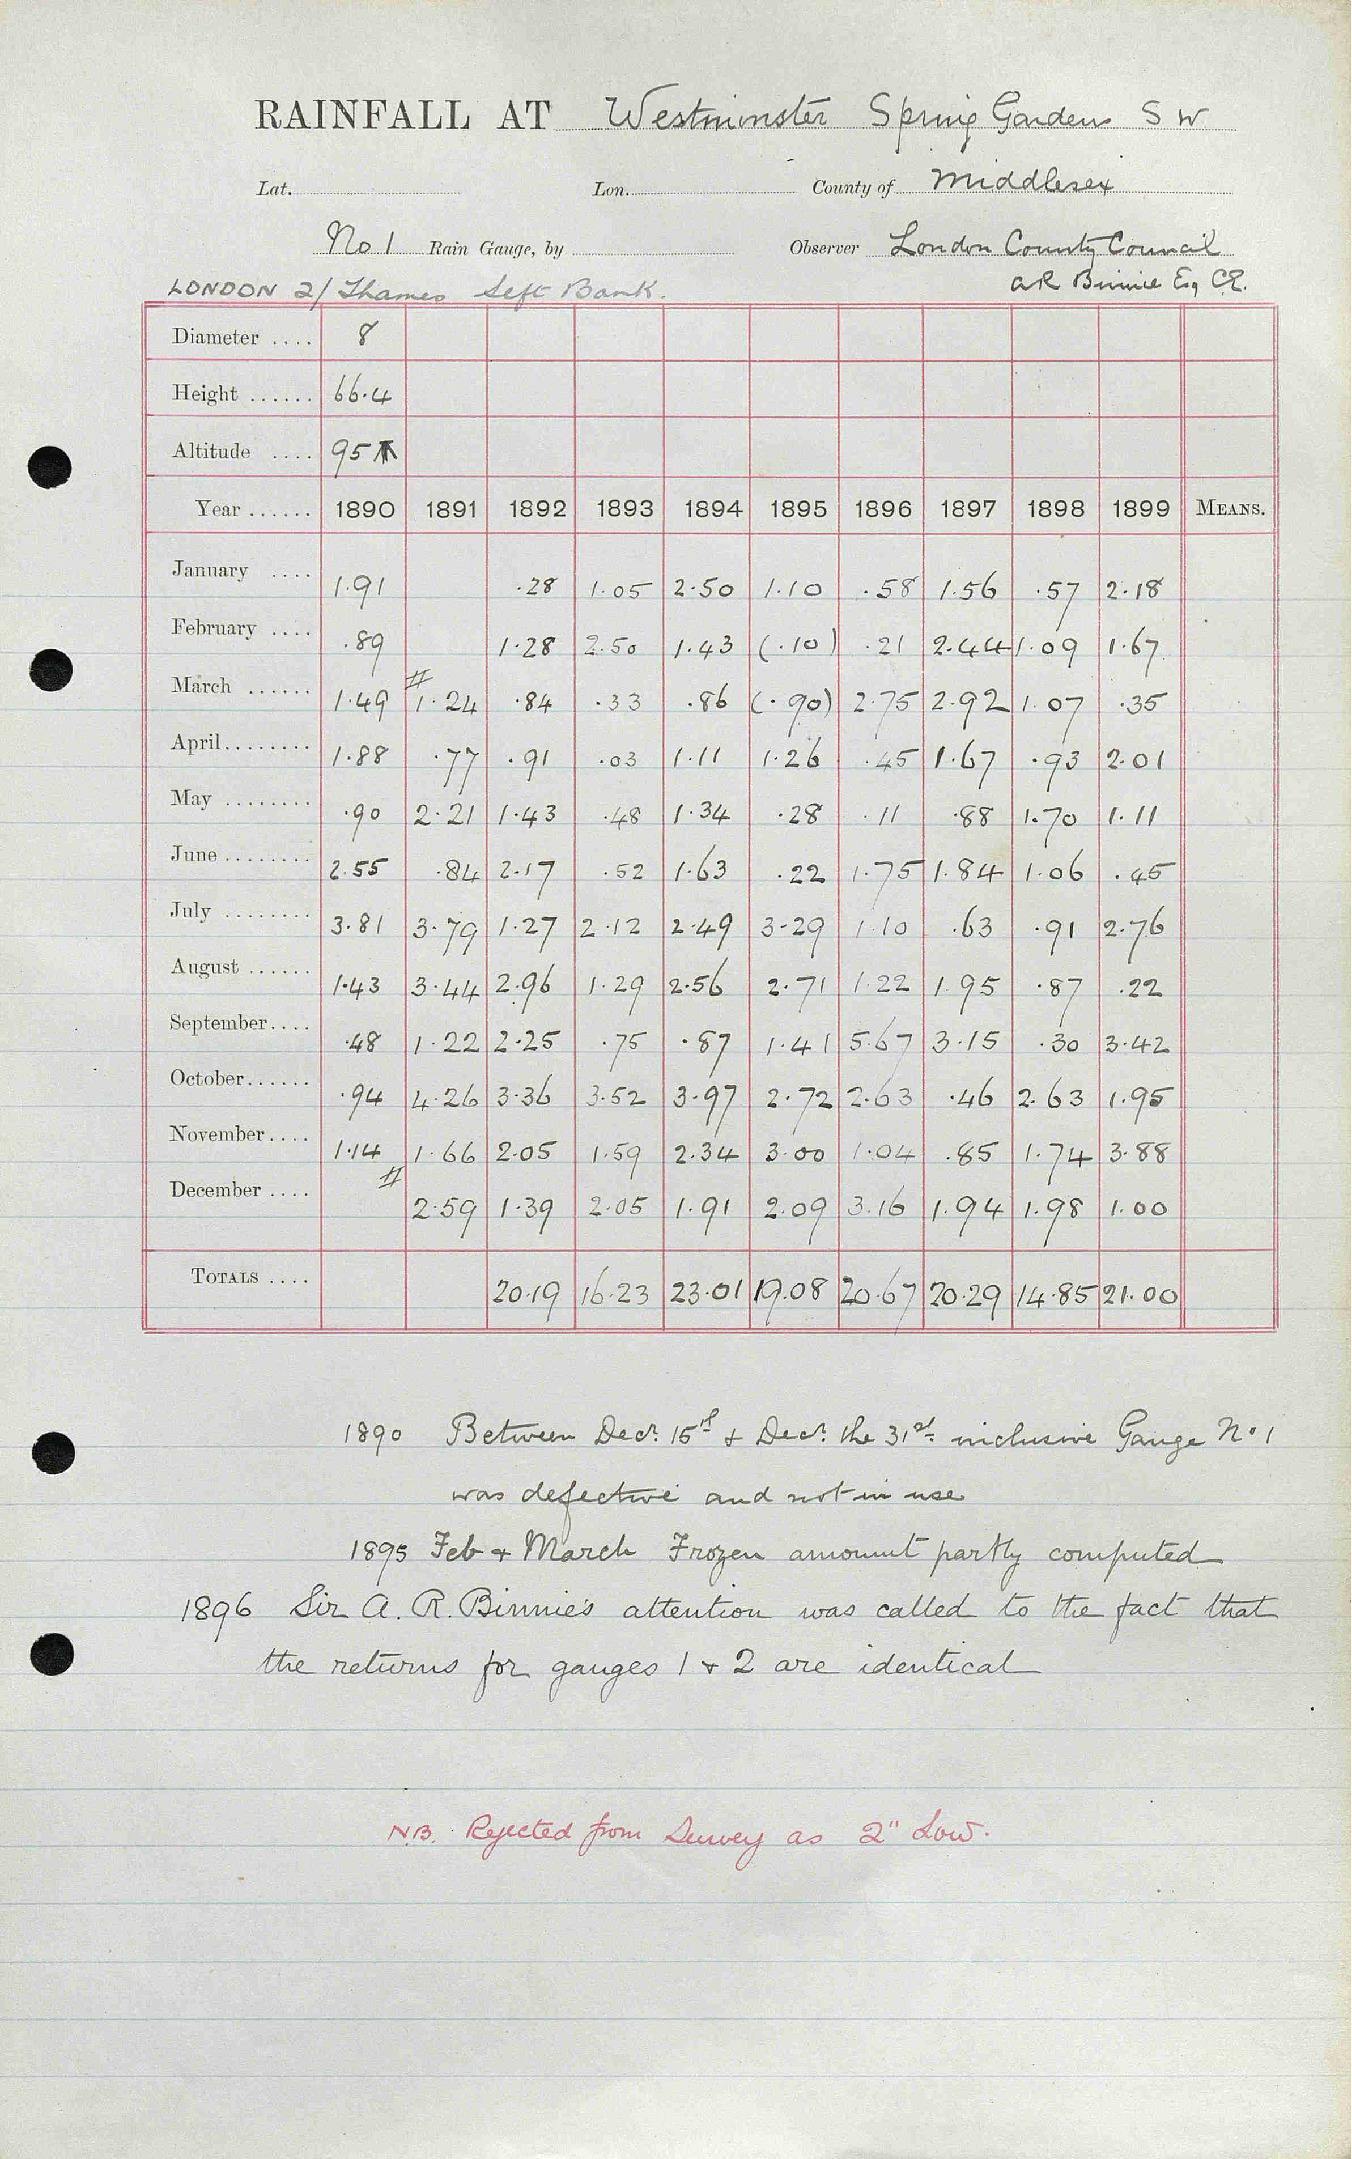 RAINFALL AT Westminster Spring Gardens S W
Lat. Lon. County of Middlesex
No 1 Rain Gauge, by Observer London County Council
LONDON 2/ Thames Left Bank. A R Binnie Esq CE.
Diameter .... 8
Height ...... 66.4
Altitude .... 95
Year ...... 1890 1891 1892 1893 1894 1895 1896 1897 1898 1899 MEANS.
January .... 1.91 .28 1.05 2.50 1.10 .58 1.56 .57 2.18
February .... .89 1.28 2.50 1.43 (.10) .21 2.44 1.09 1.67
March ...... 1.49 # 1.24 .84 .33 .86 (.90) 2.75 2.92 1.07 .35
April ........ 1.88 .77 .91 .03 1.11 1.26 .45 1.67 .93 2.01
May ........ .90 2.21 1.43 .48 1.34 .28 .11 .88 1.70 1.11
June ........ 2.55 .84 2.17 .52 1.63 .22 1.75 1.84 1.06 .45
July ........ 3.81 3.79 1.27 2.12 2.49 3.29 1.10 .63 .91 2.76
August ...... 1.43 3.44 2.96 1.29 2.56 2.71 1.22 1.95 .87 .22
September .... .48 1.22 2.25 .75 .87 1.41 5.67 3.15 .30 3.42
October ...... .94 4.26 3.36 3.52 3.97 2.72 2.63 .46 2.63 1.95
November .... 1.14 1.66 2.05 1.59 2.34 3.00 1.04 .85 1.74 3.88
December .... # 2.59 1.39 2.05 1.91 2.09 3.16 1.94 1.98 1.00
TOTALS .... 20.19 16.23 23.01 19.08 20.67 20.29 14.85 21.00
1890 Between Decr. 15th & Decr. the 31st inclusive Gauge No 1
was defective and not in use
1895 Feb & March Frozen amount partly computed
1896 Sir A. R. Binnie's attention was called to the fact that
the returns for gauges 1 & 2 are identical
N.B. Rejected from Survey as 2" Low.